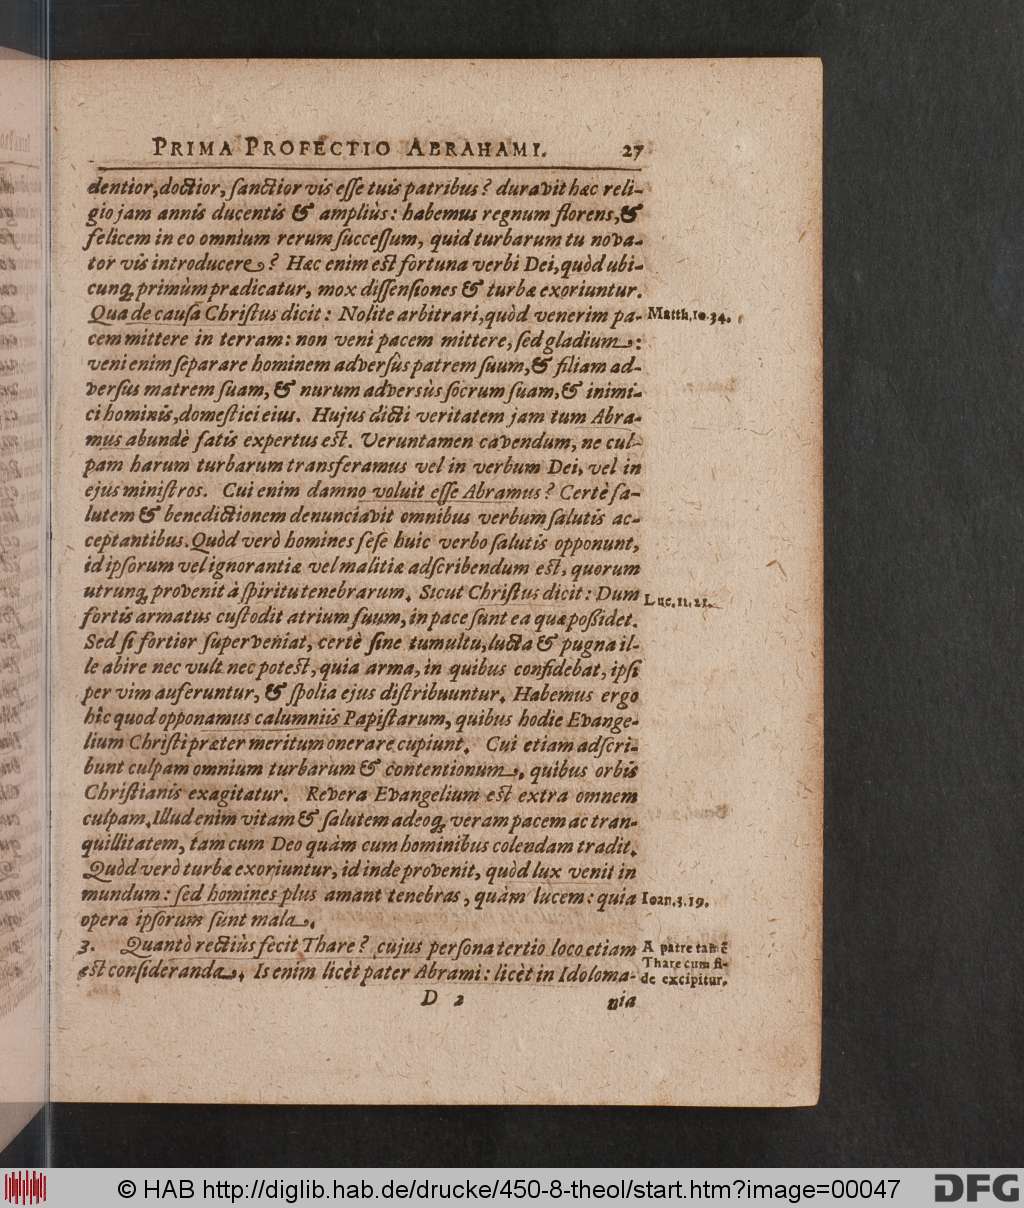 PRIMA PROFECTIO ABRAHAMI. 27
dentior, doctior, ſanctior vis eſſe tuis patribus? duravit hæc reli-
gio jam annis ducentis & ampliùs: habemus regnum florens, &
felicem in eo omnium rerum ſucceſſum, quid turbarum tu nova-
tor vis introducere? Hæc enim est fortuna verbi Dei, quòd ubi-
cunq́ primùm prædicatur, mox diſſenſiones & turbæ exoriuntur.
Qua de cauſa Chriſtus dicit: Nolite arbitrari, quòd venerim pa-
Matth. 10. 34.
cem mittere in terram: non veni pacem mittere, ſed gladium:
veni enim ſeparare hominem adverſùs patrem ſuum, & filiam ad-
verſus matrem ſuam, & nurum adversùs ſocrum ſuam, & inimi-
ci hominis, domeſtici eius. Hujus dicti veritatem jam tum Abra-
mus abundè ſatis expertus est. Veruntamen cavendum, ne cul-
pam harum turbarum transferamus vel in verbum Dei, vel in
ejus miniſtros. Cui enim damno voluit eſſe Abramus? Certè ſa-
lutem & benedictionem denunciavit omnibus verbum ſalutis ac-
ceptantibus. Quòd verò homines ſeſe huic verbo ſalutis opponunt,
id ipſorum vel ignorantiæ vel malitiæ adſcribendum est, quorum
utrunq́ provenit à ſpiritu tenebrarum. Sicut Chriſtus dicit: Dum
Luc. 11. 21.
fortis armatus cuſtodit atrium ſuum, in pace ſunt ea quæ poßidet.
Sed ſi fortior ſuperveniat, certè ſine tumultu, lucta & pugna il-
le abire nec vult nec potest, quia arma, in quibus confidebat, ipſi
per vim auferuntur, & ſpolia ejus diſtribuuntur. Habemus ergo
hîc quod opponamus calumniis Papiſtarum, quibus hodie Evange-
lium Chriſti præter meritum onerare cupiunt. Cui etiam adſcri-
bunt culpam omnium turbarum & contentionum, quibus orbis
Chriſtianis exagitatur. Revera Evangelium est extra omnem
culpam. Illud enim vitam & ſalutem adeoq́ veram pacem ac tran-
quillitatem, tam cum Deo quàm cum hominibus colendam tradit.
Quòd verò turbæ exoriuntur, id inde provenit, quòd lux venit in
mundum: ſed homines plus amant tenebras, quàm lucem: quia
Ioan. 3. 19.
opera ipſorum ſunt mala.
3. Quantò rectiùs fecit Thare? cujus perſona tertio loco etiam
est conſideranda. Is enim licèt pater Abrami: licèt in Idoloma-
A patre tamẽ
Thare cum fi-
de excipitur.
D 2 nia
© HAB http://diglib.hab.de/drucke/450-8-theol/start.htm?image=00047
DFG